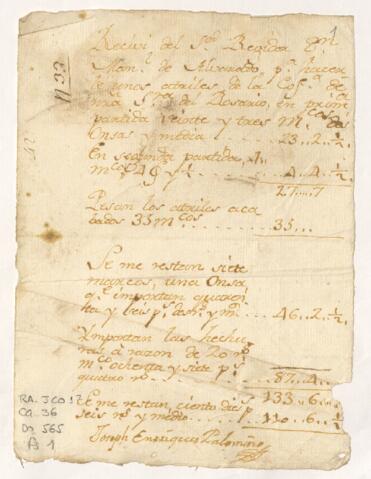 1
Nº 33
Recivi del Sr. Regidor Dn
Man.l de Alvarado pª hacer
le unos atriles de la Cof.ª de
nra Srª del Rosario, en primª
partida veinte y tres m.cos dos
Onsas y media . . . . 23 .. 2 .. ½ ..
En segunda partida
m.cos 4 8 y ½ . . . . 4 .. 4 .. ½ ..
27 .... 7
Pesan los atriles aca
bados 35 m.cos . . . . 35 ....
Se me restan siete
marcos, una Onsa
q.e importan quaren
ta y seis p.s dos r.s y m.o . . . 46 .. 2 .. ½
Ymportan las hechu
ras a razon de 20 r.s
m.co ochenta y siete p.s
quatro r.s . . . . 87 .. 4 ..
133 .. 6 .. ½
Se me restan ciento dies p.s
seis r.s y medio . . . . 110 .. 6 .. ½
Joseph Enrriques Palomino
RA. JCO 17
CA. 36
Do 565
f. 1